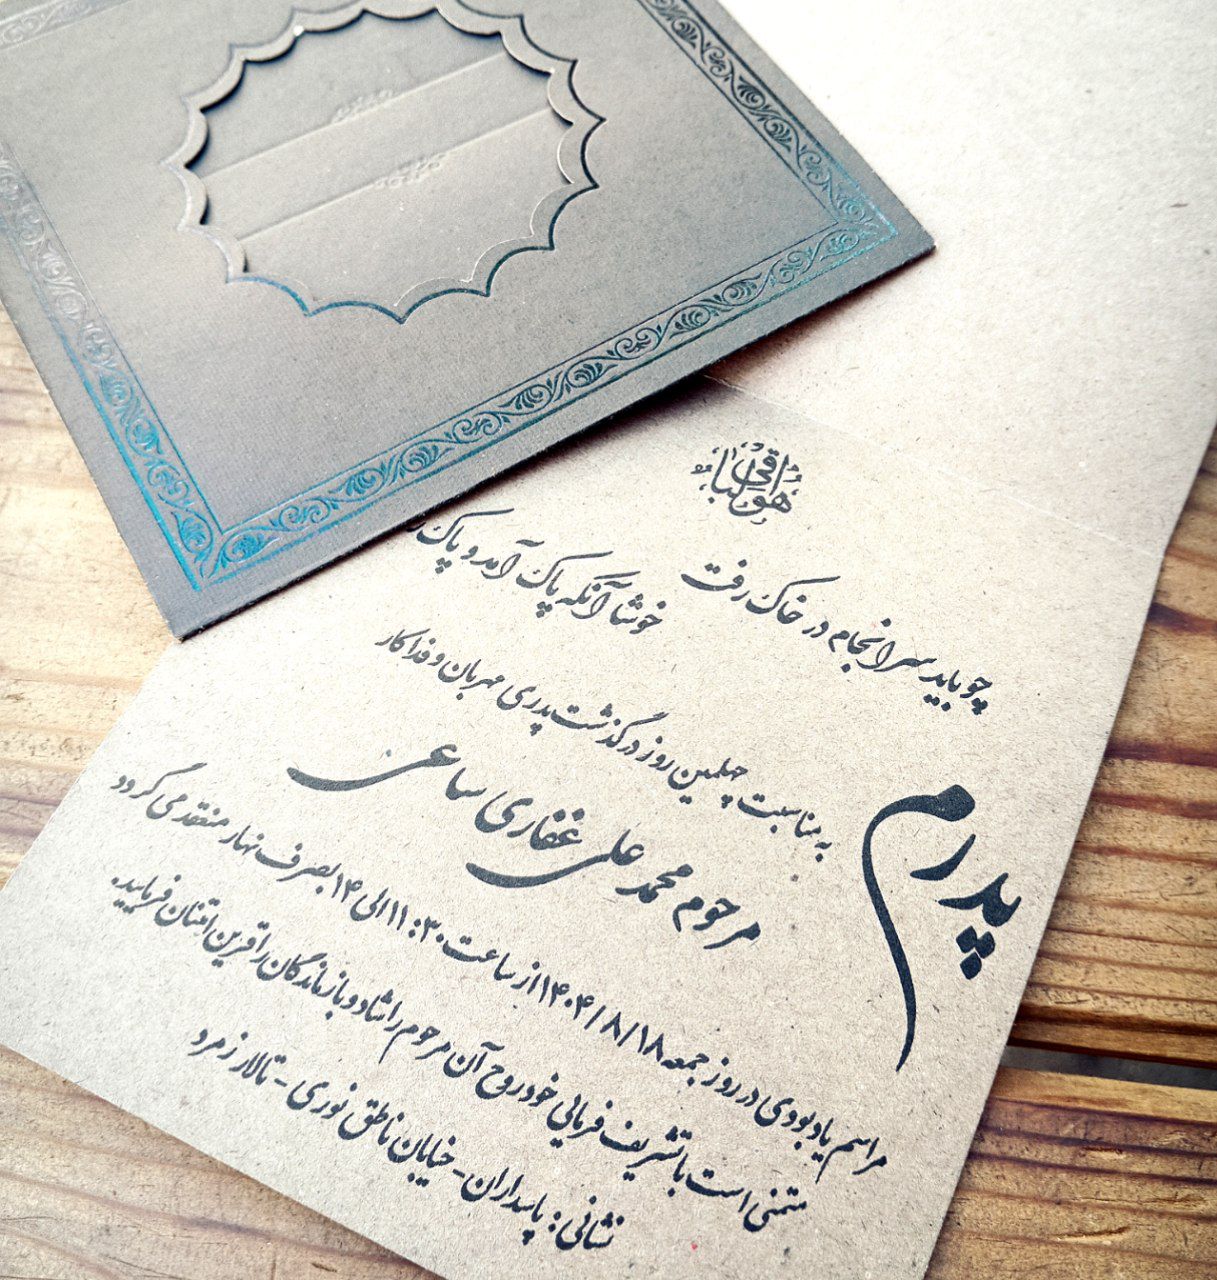 هو الباقی
چو باید سرانجام در خاک رفت
خوشا آنکه پاک آمد و پاک
پدرم
به مناسبت چهلمین روز درگذشت پدری مهربان و فداکار
مرحوم محمد علی غفاری ساعی
مراسم یادبودی در روز جمعه ۱۴۰۴/۸/۱۸ از ساعت ۱۱:۳۰ الی ۱۴ بصرف نهار منعقد می گردد
متمنی است با تشریف فرمائی خود روح آن مرحوم را شاد و بازماندگان را قرین امتنان فرمایید.
نشانی: پاسداران - خیابان ناطق نوری - تالار زمرد